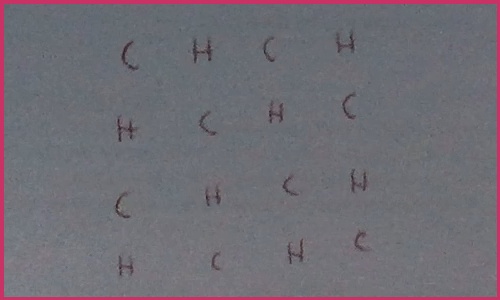 C H C H
H C H C
C H C H
H C H C